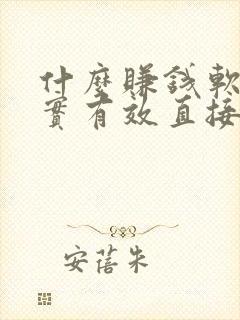 什麼賺錢軟
實有效直接
安蓓朱